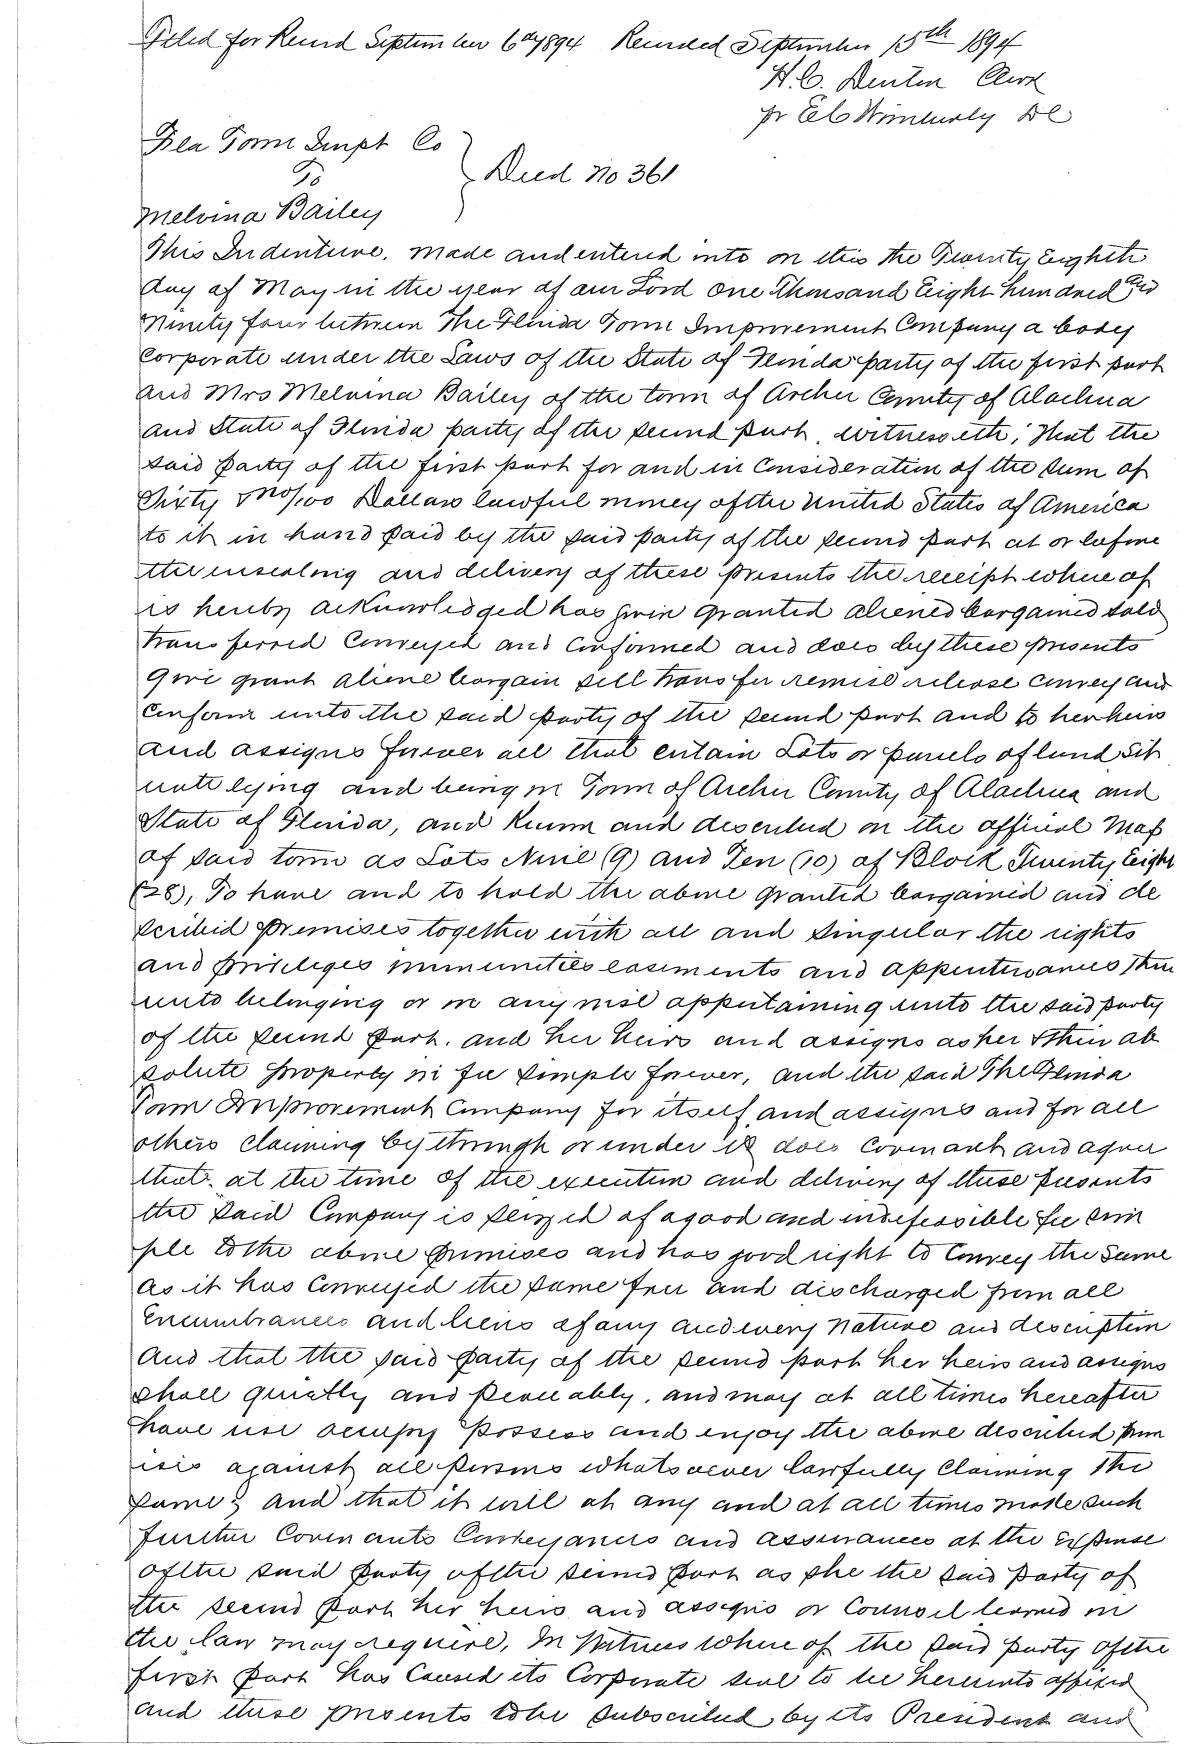 Filed for Record September 6th 1894 Recorded September 15th 1894
H. C. Denton Clerk
pr E C Wimberly DC
Fla Town Impt Co
To
Deed No 361
Melvina Bailey
This Indenture, made and entered into on this the Twenty Eighth
day of May in the year of our Lord One Thousand Eight hundred and
Ninety four between The Florida Town Improvement Company a body
corporate under the Laws of the State of Florida party of the first part
and Mrs Melvina Bailey of the town of Archer County of Alachua
and State of Florida party of the second part, witnesseth; That the
said party of the first part for and in consideration of the sum of
Sixty & no/100 Dollars lawful money of the United States of America
to it in hand paid by the said party of the second part at or before
the ensealing and delivery of these presents the receipt where of
is hereby acknowledged has given granted aliened bargained sold
transferred conveyed and confirmed and does by these presents
give grant aliene bargain sell transfer remise release convey and
confirm unto the said party of the second part and to her heirs
and assigns forever all that certain Lots or parcels of land sit
uate lying and being in Town of Archer County of Alachua and
State of Florida, and known and described on the official Map
of said town as Lots Nine (9) and Ten (10) of Block Twenty Eight
(28), To have and to hold the above granted bargained and de
scribed premises together with all and singular the rights
and privileges immunities easements and appurtenances there
unto belonging or in any wise appertaining unto the said party
of the second part, and her heirs and assigns as her & their ab
solute property in fee simple forever, and the said The Florida
Town Improvement Company for itself and assigns and for all
others claiming by through or under it does covenant and agree
that, at the time of the execution and delivery of these presents
the said Company is seized of a good and indefessible fee sim
ple to the above premises and has good right to convey the same
as it has conveyed the same free and discharged from all
Encumbrances and liens of any and every nature and description
And that the said party of the second part her heirs and assigns
shall quietly and peaceably, and may at all times hereafter
have use occupy possess and enjoy the above described prem
ises against all persons whatsoever lawfully claiming the
same; and that it will at any and at all times make such
further covenants conveyances and assurances at the Expense
of the said party of the second part as she the said party of
the second part her heirs and assigns or Counsel learned in
the law may require, In Witness where of the said party of the
first part has caused its Corporate seal to be hereunto affixed
and these presents to be subscribed by its President and